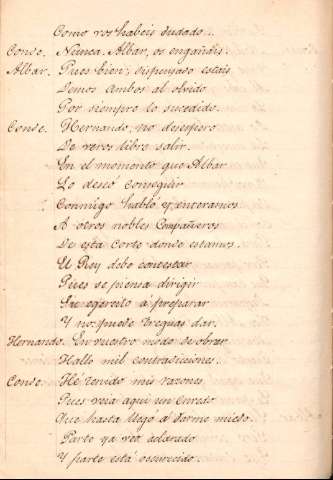 Como vos habeis dudado...
Conse. Nunca Albar, os engañais.
Albar. Pues bien; dispensado estais
Demos ambos al olvido
Por siempre lo sucedido.
Conse. Hernando, no desespero
De veros libre salir.
En el momento que Albar
Lo deseó conseguir
Conmigo habló y enteramos
A otros nobles compañeros
De esta Corte donde estamos.
El Rey debe contestar
Pues se piensa dirigir
Su egercito á preparar
Y no puede treguas dar.
Hernando. En vuestro modo de obrar
Hallo mil contradiciones.
Conse. Hé tenido mis razones
Pues veia aqui un enredo
Que hasta llegó á darme miedo.
Parte ya veo aclarado
Y parte está oscurecido.